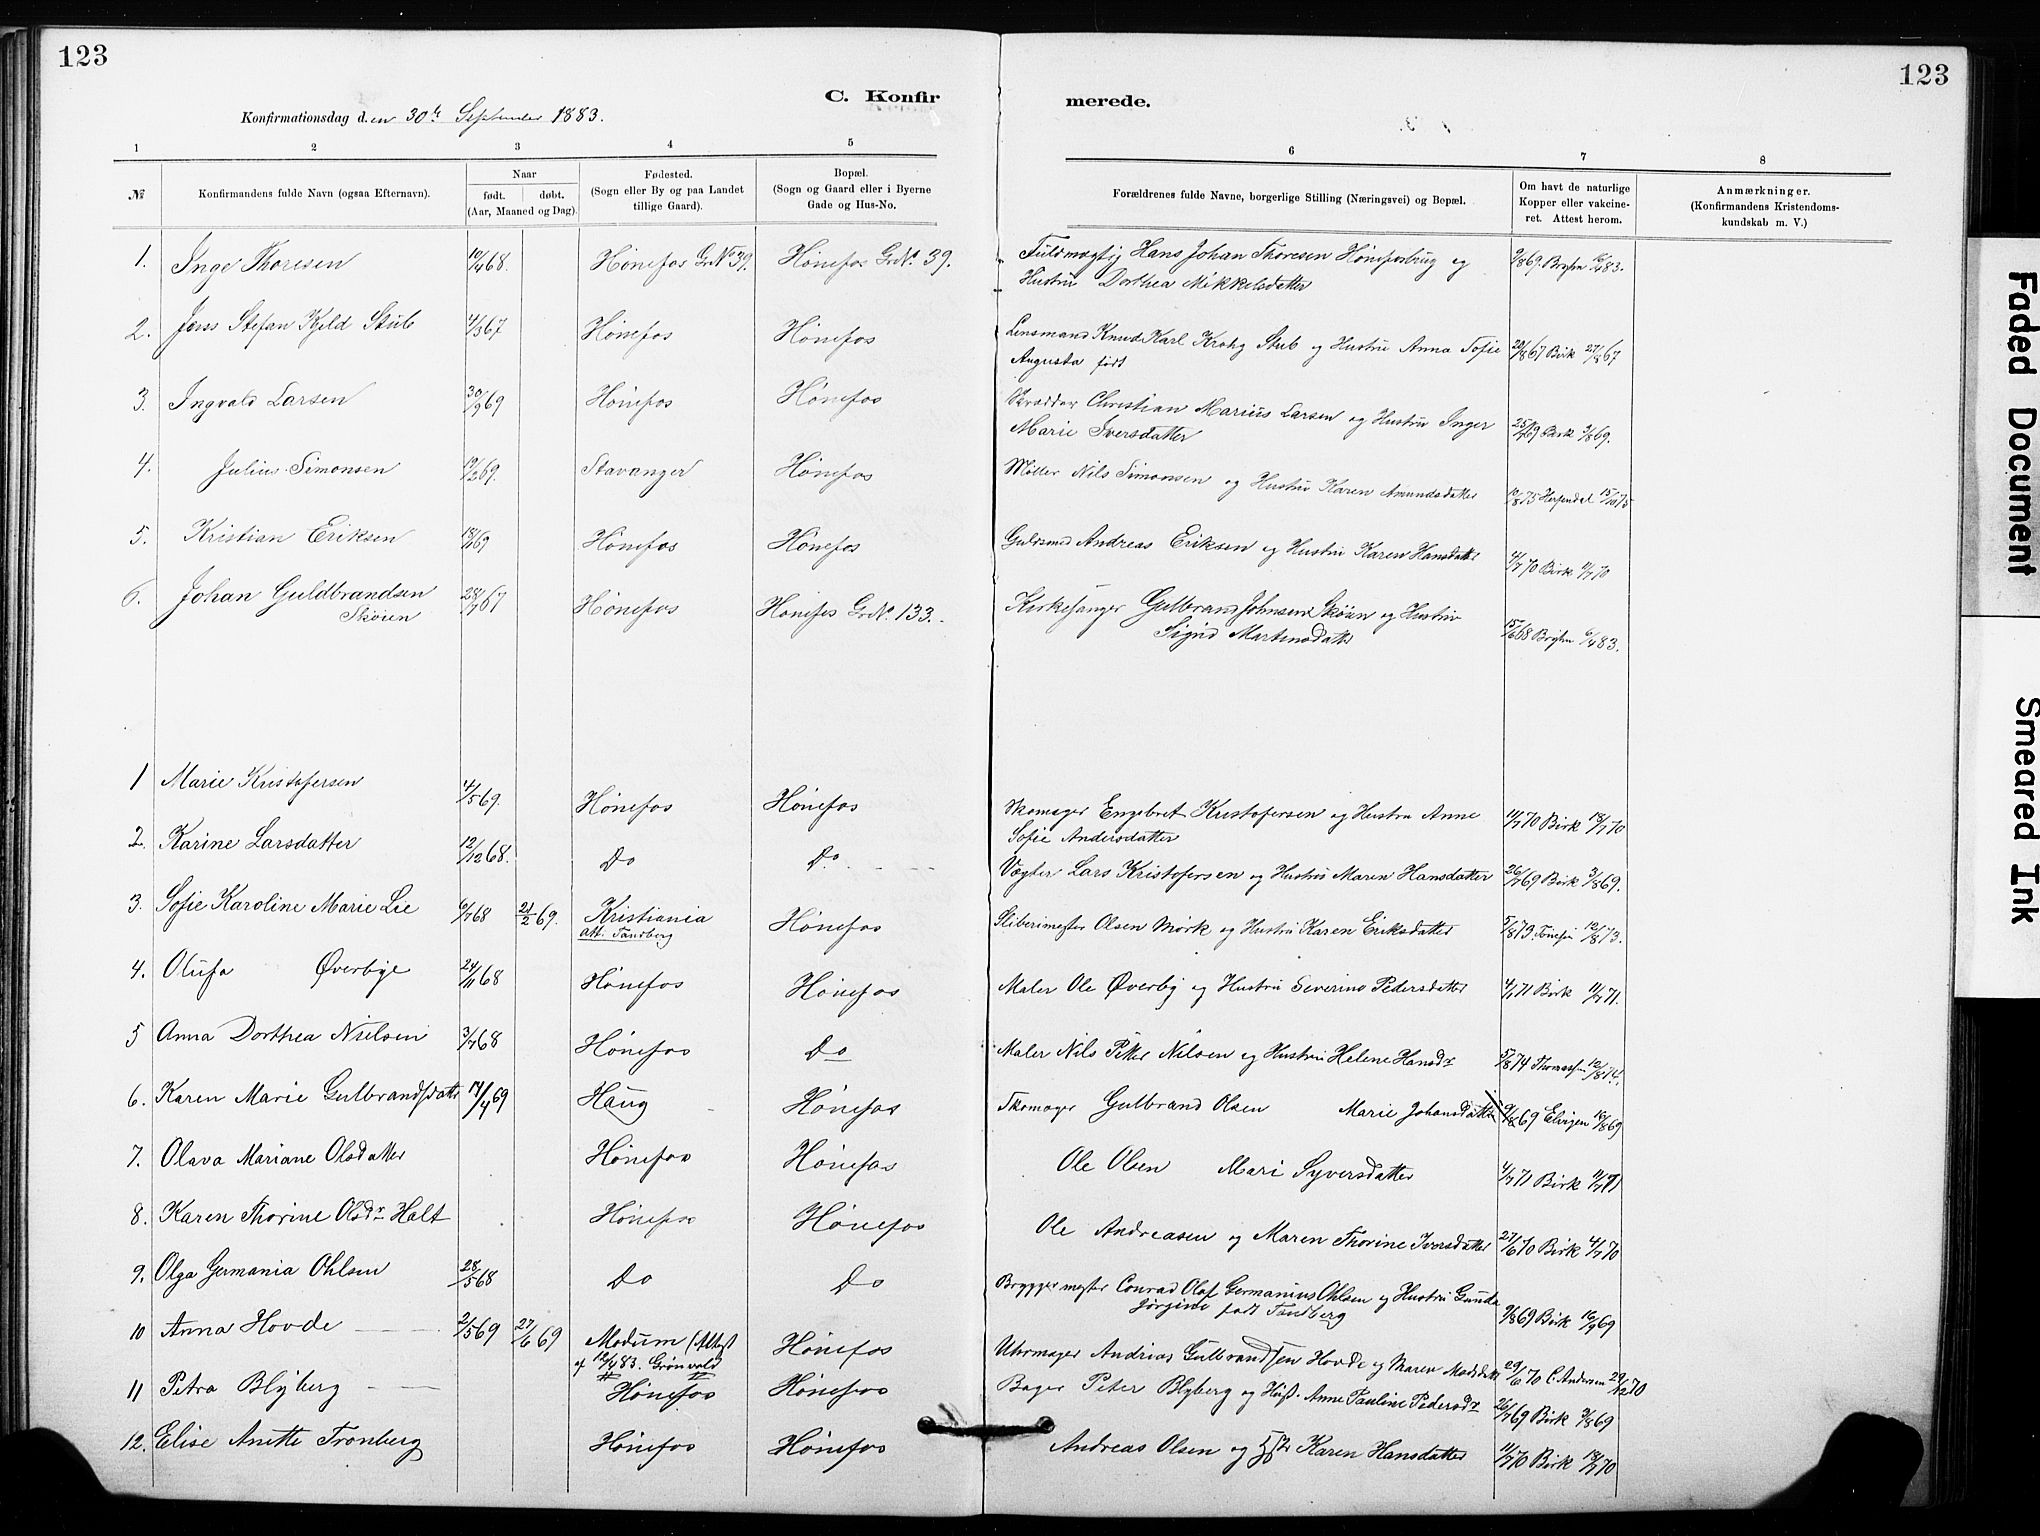 123
123
C. Konfirmerede.
Konfirmationsdag den 30te September 1883.
1 2 3 4 5 6 7 8
№
Konfirmandens fulde Navn (ogsaa Efternavn).
Naar
født. døbt.
(Aar, Maaned og Dag).
Fødested.
(Sogn eller By og paa Landet
tillige Gaard).
Bopæl.
(Sogn og Gaard eller i Byerne
Gade og Hus-No.
Forældrenes fulde Navne, borgerlige Stilling (Næringsvei) og Bopæl.
Om havt de naturlige
Kopper eller vakcine-
ret. Attest herom.
Anmærkninger.
(Konfirmandens Kristendoms-
kundskab m. V.)
1. Inge Thoresen 10/4 68. Hønefos GrNo 39. Hønefos GrNo. 39. Fuldmægtig Hans Johan Thoresen Hønefosbrug og
Hustru Dorthea Mikkelsdatter
2. Jens Stefan Kjeld Stub 4/3 67 Hønefos Hønefos Lensmand Knud Karl Krohg Stub og Hustru Anna Sofie 20/8 67 Birk 27/8 67
Augusta født
3. Ingvald Larsen 30/9 69 Hønefos Hønefos Skrædder Christian Marius Larsen og Hustru Inger
Marie Iversdatter Birk 3/8 69.
4. Julius Simonsen 19/2 69. Stavanger Hønefos Møller Nils Simonsen og Hustru Karen Amundsdatter
5. Kristian Eriksen 69 Hønefos Hønefos Guldsmed Andreas Eriksen og Hustru Karen Hansdatter 4/7 70 Birk 11/7 70
6. Johan Guldbrandsen 28/7 67 Hønefos Hønefos GrNo. 133. Kirkesanger Gulbrand Johnsen Skøien og Hustru
Skøien Sigrid Martinsdatter 15/6 68 6/4 83.
1 Marie Kristofersen 4/5 69. Hønefos Hønefos Skomager Engebret Kristofersen og Hustru Anne 11/7 70 Birk 18/7 70
Sofie Andersdatter
2. Karine Larsdatter 12/12 68. Do Do. Vægter Lars Kristofersen og Hustru Maren Hansdatter 26/7 69 Birk 3/8 69.
3. Sofie Karoline Marie Lie 6/7 68 21/2 69. Kristiania Hønefos Sliberimester Olsen Mørk og Hustru Karen Eriksdatter 5/8 73 12/8 73.
att. Tandberg
4. Olufa Øverbye 24/11 68 Hønefos Hønefos Maler Ole Øverby og Hustru Severine Pedersdatter 4/7 71 Birk 11/7 71.
5 Anna Dorthea Nielsen 3/7 68 Hønefos Do Maler Nils Petter Nilsen og Hustru Helene Hansdr 5/8 74 Thomassen 12/8 74.
6. Karen Marie Gulbrandsdatter 17/4 69 Haug Hønefos Skomager Gulbrand Olsen Marie Johansdatter 9/8 69 16/8 69
7. Olava Mariane Olsdatter Hønefos Hønefos Ole Olsen Mari Syversdatter 4/7 71 Birk 11/7 71
8. Karen Thorine Olsdr Halt Hønefos Hønefos Ole Andreasen og Maren Thorine Iversdatter 27/6 70 Birk 4/7 70
9. Olga Germania Ohlsen 28/5 68 Do Do Bryggermester Conrad Olaf Germanius Ohlsen og Hustru Gunda
Jørgine født Tandberg 9/8 69 Birk 16/9 69
10 Anna Hovde 2/5 69 27/6 69 Modum (Attest Hønefos Uhrmager Andrias Gulbrandsen Hovde og Maren Madsdatter 29/6 70 C. Andersen 29/12 70
af 12/4 83. Grønvold
11 Petra Blyberg Hønefos Hønefos Bager Peter Blyberg og Hust. Anne Pauline Pedersdr 26/7 69 Birk 3/8 69
12. Elise Anette Tronberg Hønefos Hønefos Andreas Olsen og Karen Hansdatter 11/7 70 Birk 18/7 70
Faded Document
Smeared Ink